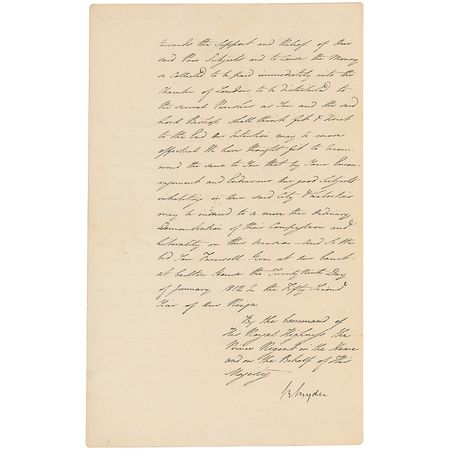 towards the Support and Relief of Our
said Poor Subjects and to cause the Money
so Collected to be paid immediately into the
Chamber of London to be distributed to
the several Parishes as You and the said
Lord Bishop shall think fit & direct
to the End Our Intention may be more
effectual We have thought fit to Recom-
mend the same to You that by Your Encou-
ragement and Endeavour Our good Subjects
inhabiting in Our said City & Liberties
may be induced to a more than Ordinary
Demonstration of their Compassion and
Liberality on this Occasion And so We
bid You Farewell Given at Our Court
at Carlton House the Day
of January 1812 In the Fifty Second
Year of Our Reign
By the Command of
His Royal Highness the
Prince Regent in the Name
and on the Behalf of His
Majesty